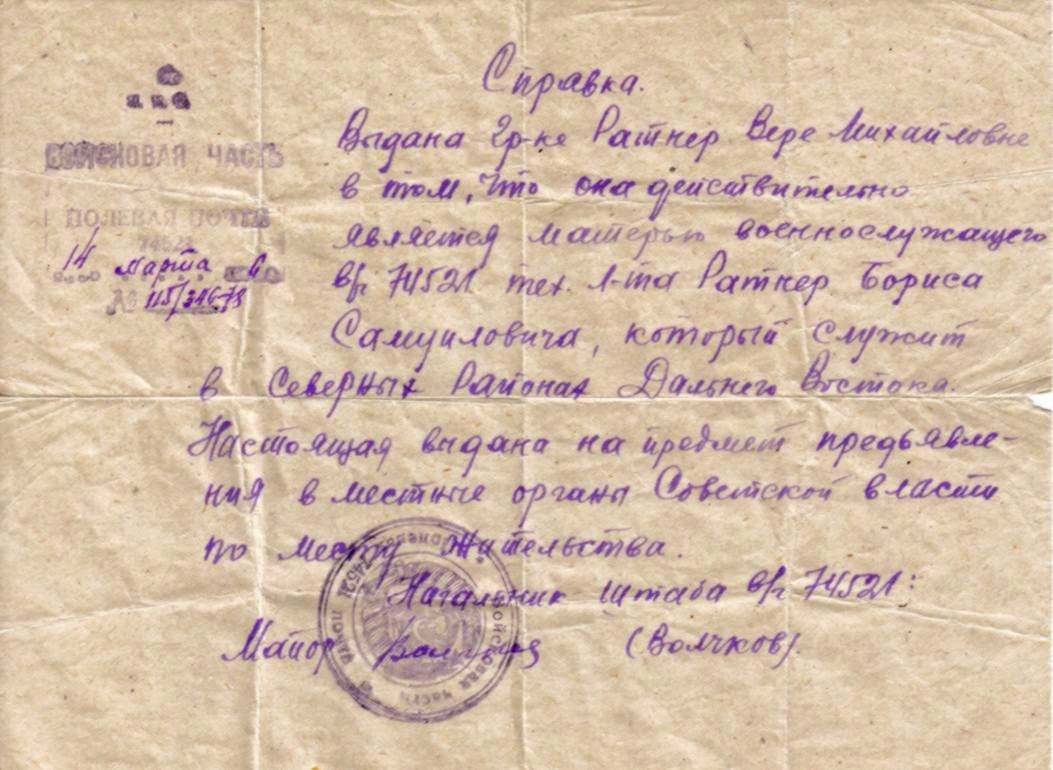 ВОЙСКОВАЯ ЧАСТЬ
ПОЛЕВАЯ ПОЧТА
74521
14 марта
№ 115/346-78
Справка.
Выдана гр-ке Ратнер Вере Михайловне
в том, что она действительно
является матерью военнослужащего
в/ч 74521 тех. л-та Ратнер Бориса
Самуиловича, который служит
в Северных Районах Дальнего Востока.
Настоящая выдана на предмет предъявле-
ния в местные органы Советской власти
по месту жительства.
Начальник штаба в/ч 74521:
Майор (Волчков).
Войсковая часть